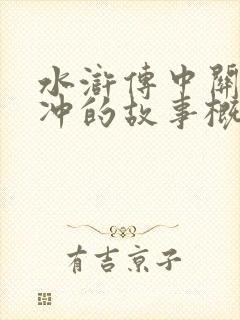 水滸傳中關
沖的故事概
有吉京子